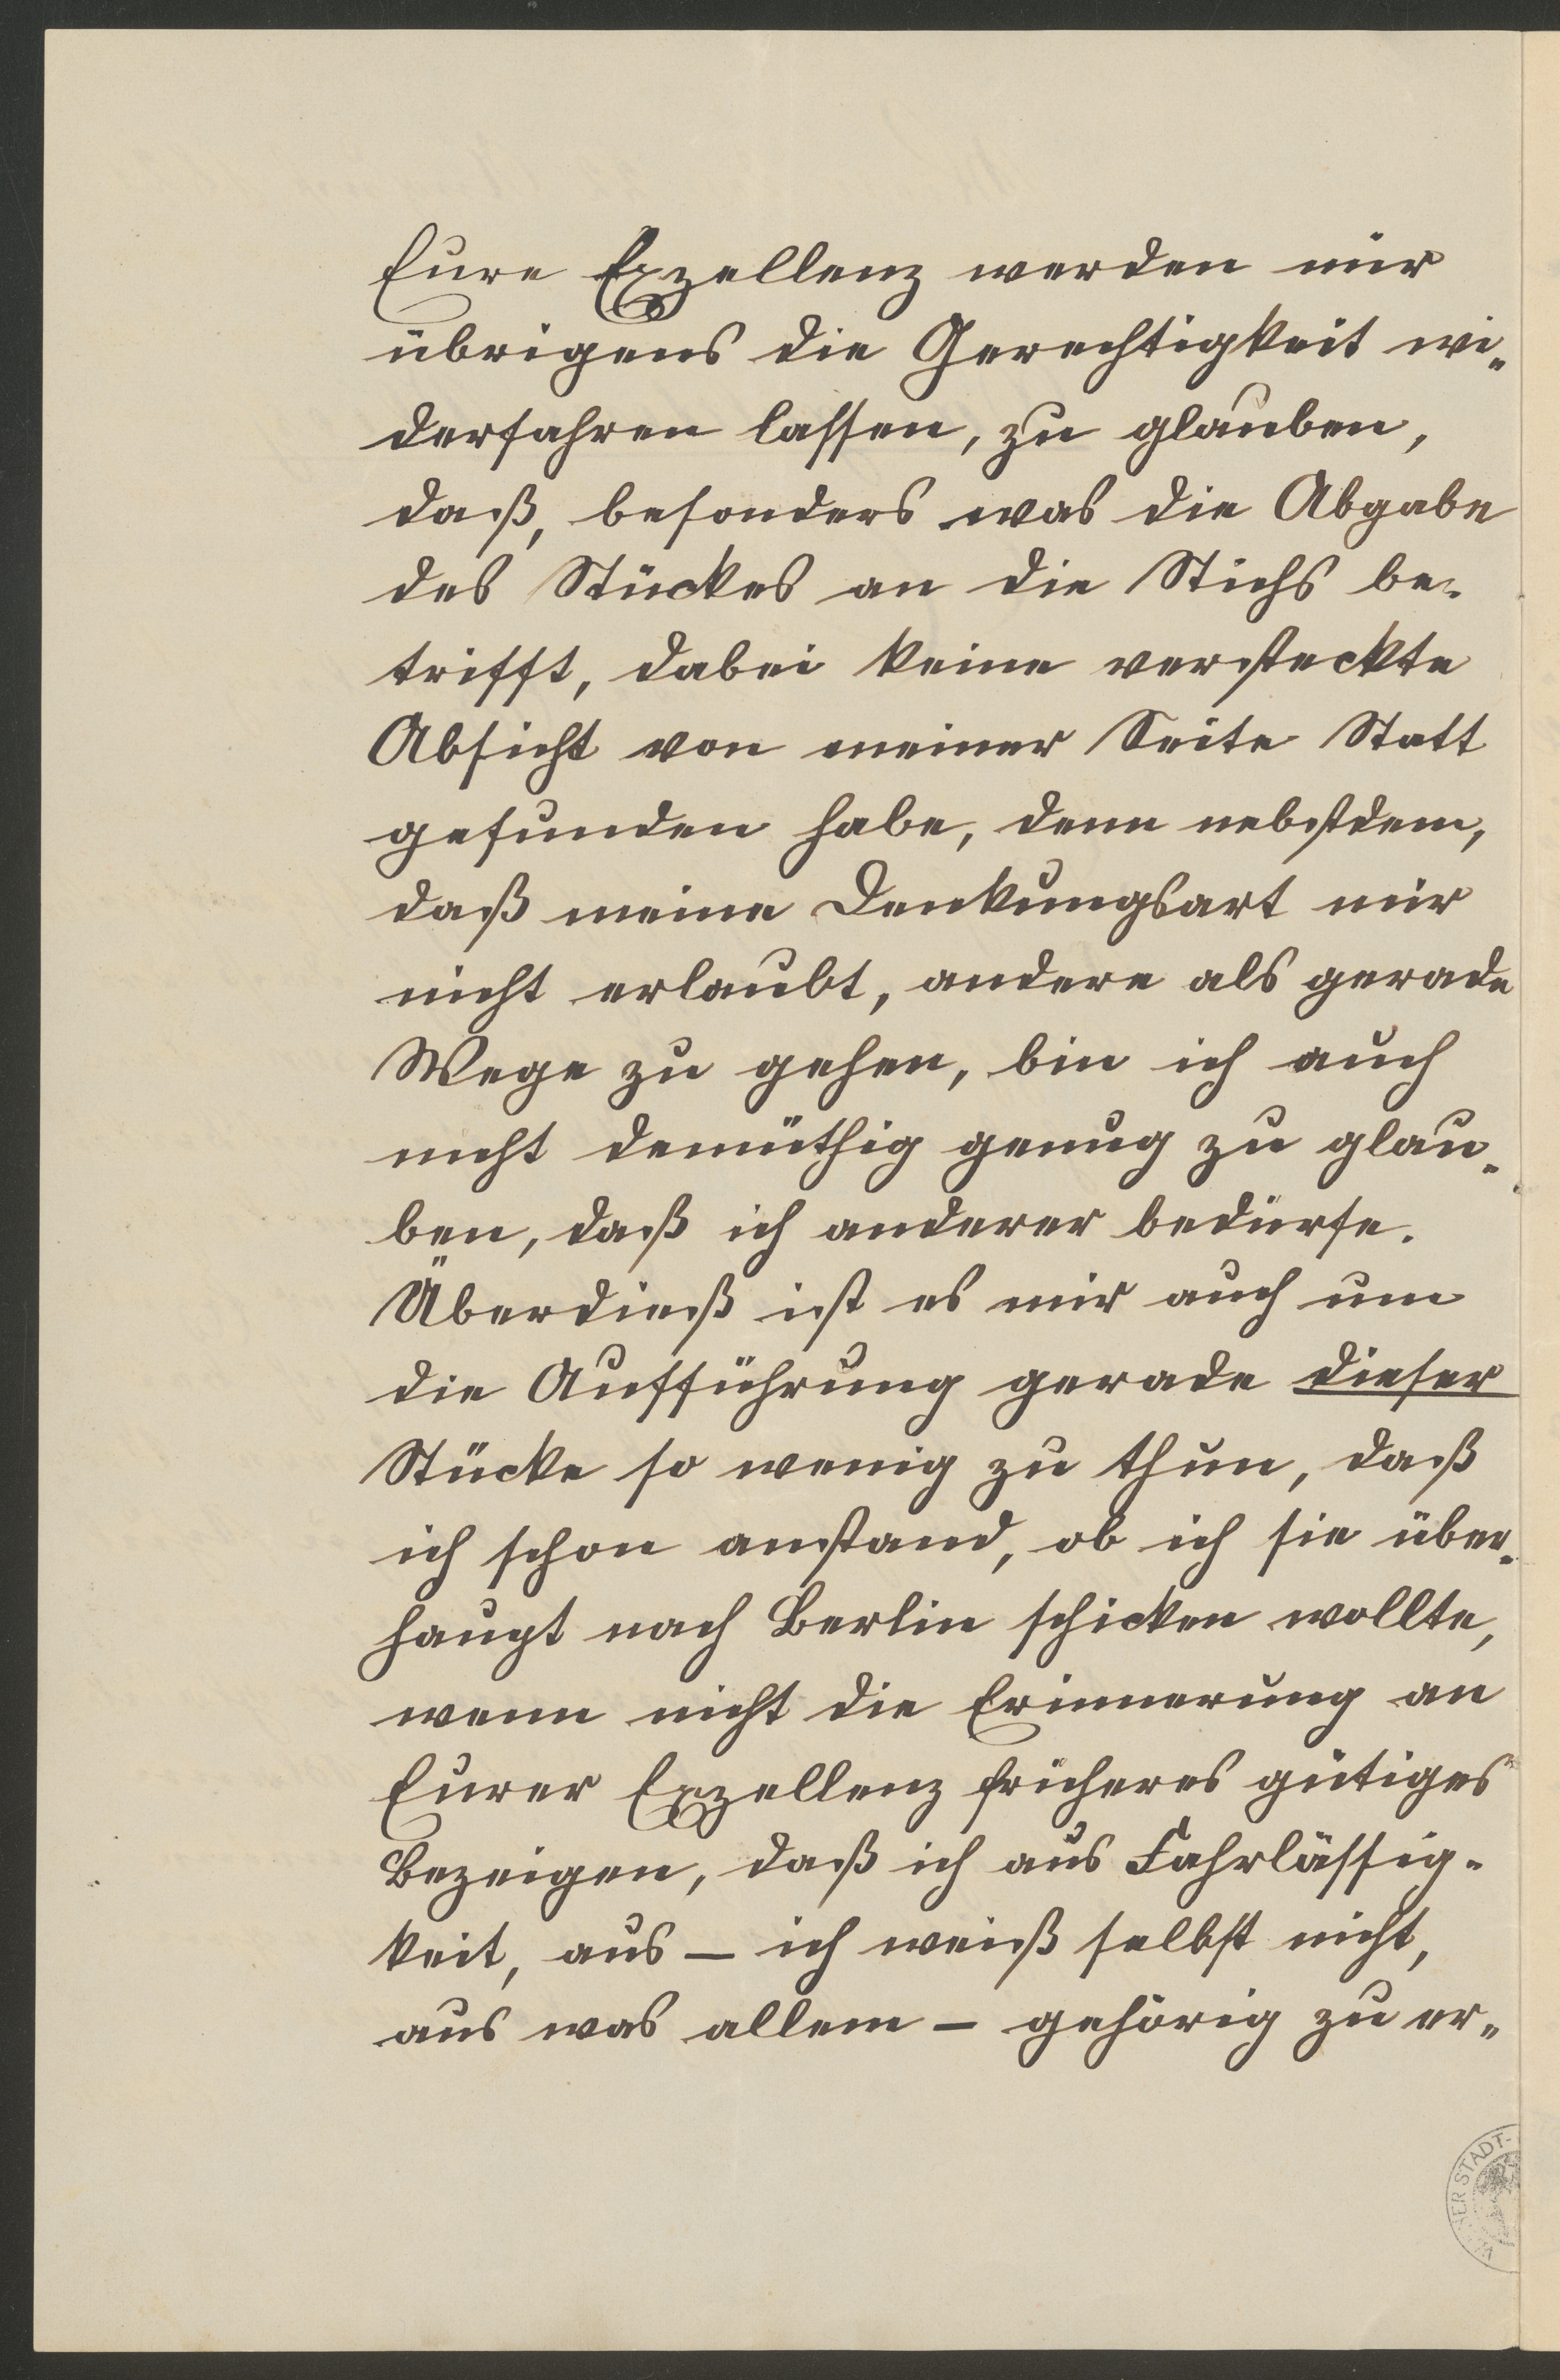 Eure Exzellenz werden mir
übrigens die Gerechtigkeit wi-
derfahren lassen, zu glauben,
daß, besonders was die Abgabe
des Stückes an die Stichs be-
trifft, dabei keine versteckte
Absicht von meiner Seite Statt
gefunden habe, denn nebstdem,
daß meine Denkungsart mir
nicht erlaubt, andere als gerade
Wege zu gehen, bin ich auch
nicht demüthig genug zu glau-
ben, daß ich anderer bedürfe.
Überdieß ist es mir auch um
die Aufführung gerade dieser
Stücke so wenig zu thun, daß
ich schon anstand, ob ich sie über-
haupt nach Berlin schicken wollte,
wenn nicht die Erinnerung an
Eurer Exzellenz früheres gütiges
Bezeigen, daß ich aus Fahrlässig-
keit, aus — ich weiß selbst nicht,
aus was allem — gehörig zu er-
WIENER STADT-